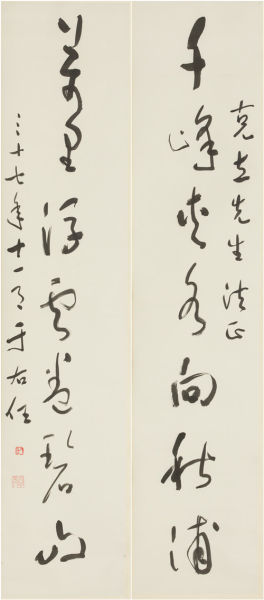 克立先生法正
千峰夾水向秋浦
萬里浮雲卷碧山
三十七年十一月于右任